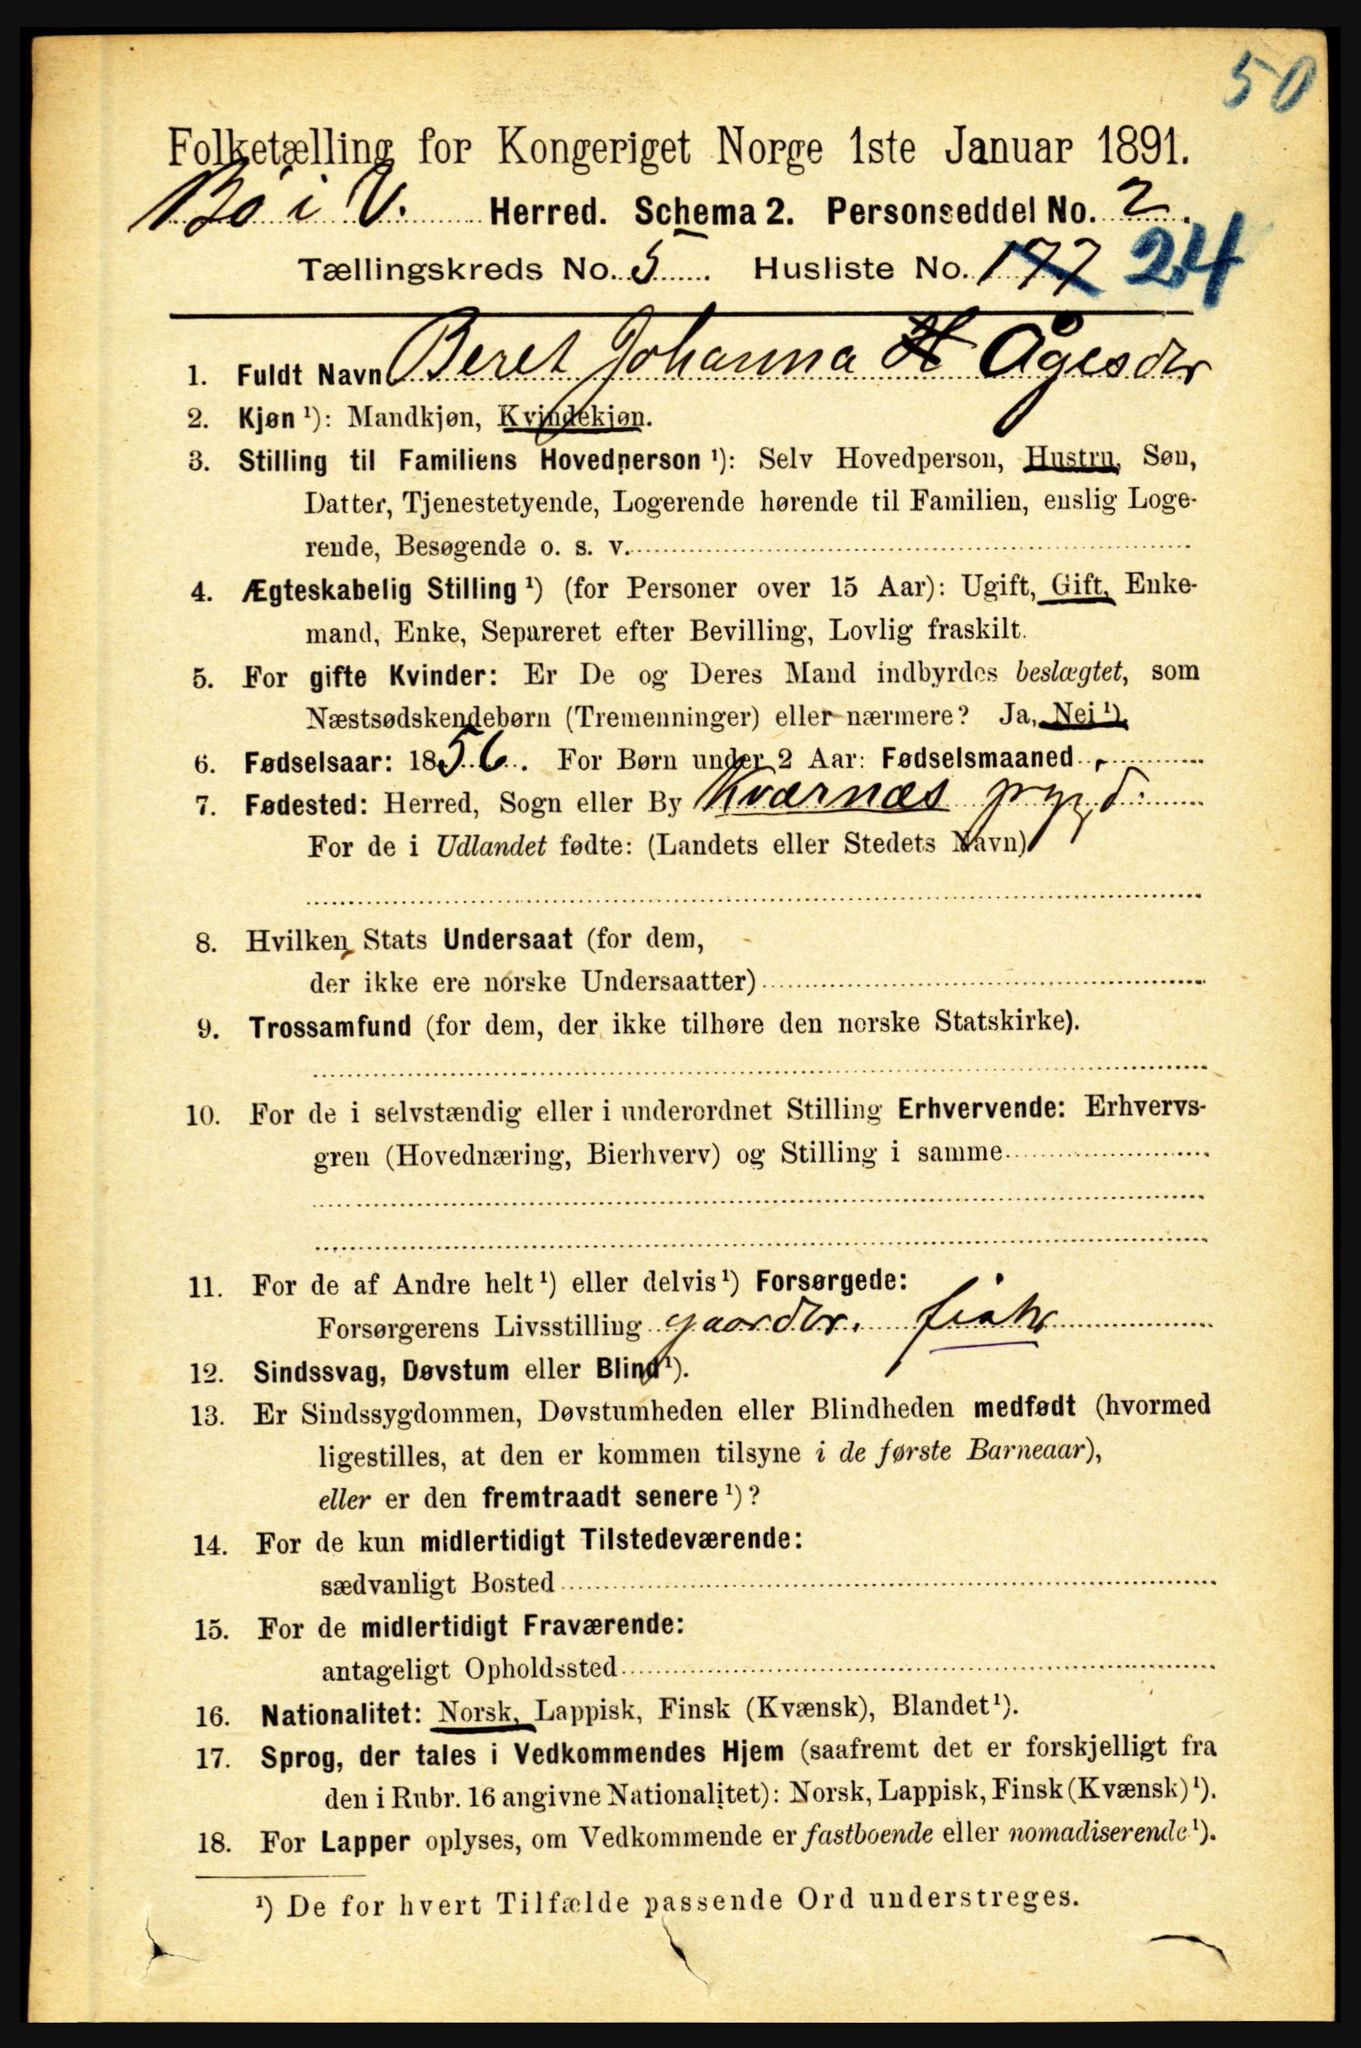 50
Folketælling for Kongeriget Norge 1ste Januar 1891.
Bø i V. Herred. Schema 2. Personseddel No. 2.
Tællingskreds No. 5. Husliste No. 177 24
1. Fuldt Navn Beret Johanna H Ågesdtr
2. Kjøn ¹): Mandkjøn, Kvindekjøn.
3. Stilling til Familiens Hovedperson ¹): Selv Hovedperson, Hustru, Søn,
Datter, Tjenestetyende, Logerende hørende til Familien, enslig Loge-
rende, Besøgende o. s. v.
4. Ægteskabelig Stilling ¹) (for Personer over 15 Aar): Ugift, Gift, Enke-
mand, Enke, Separeret efter Bevilling, Lovlig fraskilt.
5. For gifte Kvinder: Er De og Deres Mand indbyrdes beslægtet, som
Næstsødskendebørn (Tremenninger) eller nærmere? Ja, Nei ¹)
6. Fødselsaar: 1856. For Børn under 2 Aar: Fødselsmaaned
7. Fødested: Herred, Sogn eller By Kværnæs prgjd.
For de i Udlandet fødte: (Landets eller Stedets Navn)
8. Hvilken Stats Undersaat (for dem,
der ikke ere norske Undersaatter)
9. Trossamfund (for dem, der ikke tilhøre den norske Statskirke).
10. For de i selvstændig eller i underordnet Stilling Erhvervende: Erhvervs-
gren (Hovednæring, Bierhverv) og Stilling i samme
11. For de af Andre helt ¹) eller delvis ¹) Forsørgede:
Forsørgerens Livsstilling gaardbr. fisker
12. Sindssvag, Døvstum eller Blind ¹).
13. Er Sindssygdommen, Døvstumheden eller Blindheden medfødt (hvormed
ligestilles, at den er kommen tilsyne i de første Barneaar),
eller er den fremtraadt senere ¹)?
14. For de kun midlertidigt Tilstedeværende:
sædvanligt Bosted
15. For de midlertidigt Fraværende:
antageligt Opholdssted
16. Nationalitet: Norsk, Lappisk, Finsk (Kvænsk), Blandet ¹).
17. Sprog, der tales i Vedkommendes Hjem (saafremt det er forskjelligt fra
den i Rubr. 16 angivne Nationalitet): Norsk, Lappisk, Finsk (Kvænsk) ¹).
18. For Lapper oplyses, om Vedkommende er fastboende eller nomadiserende ¹).
¹) De for hvert Tilfælde passende Ord understreges.